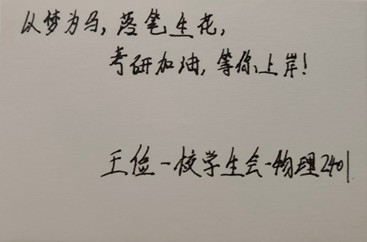 以梦为马，落笔生花，
考研加油，等你上岸！
王俭-校学生会-物理2401